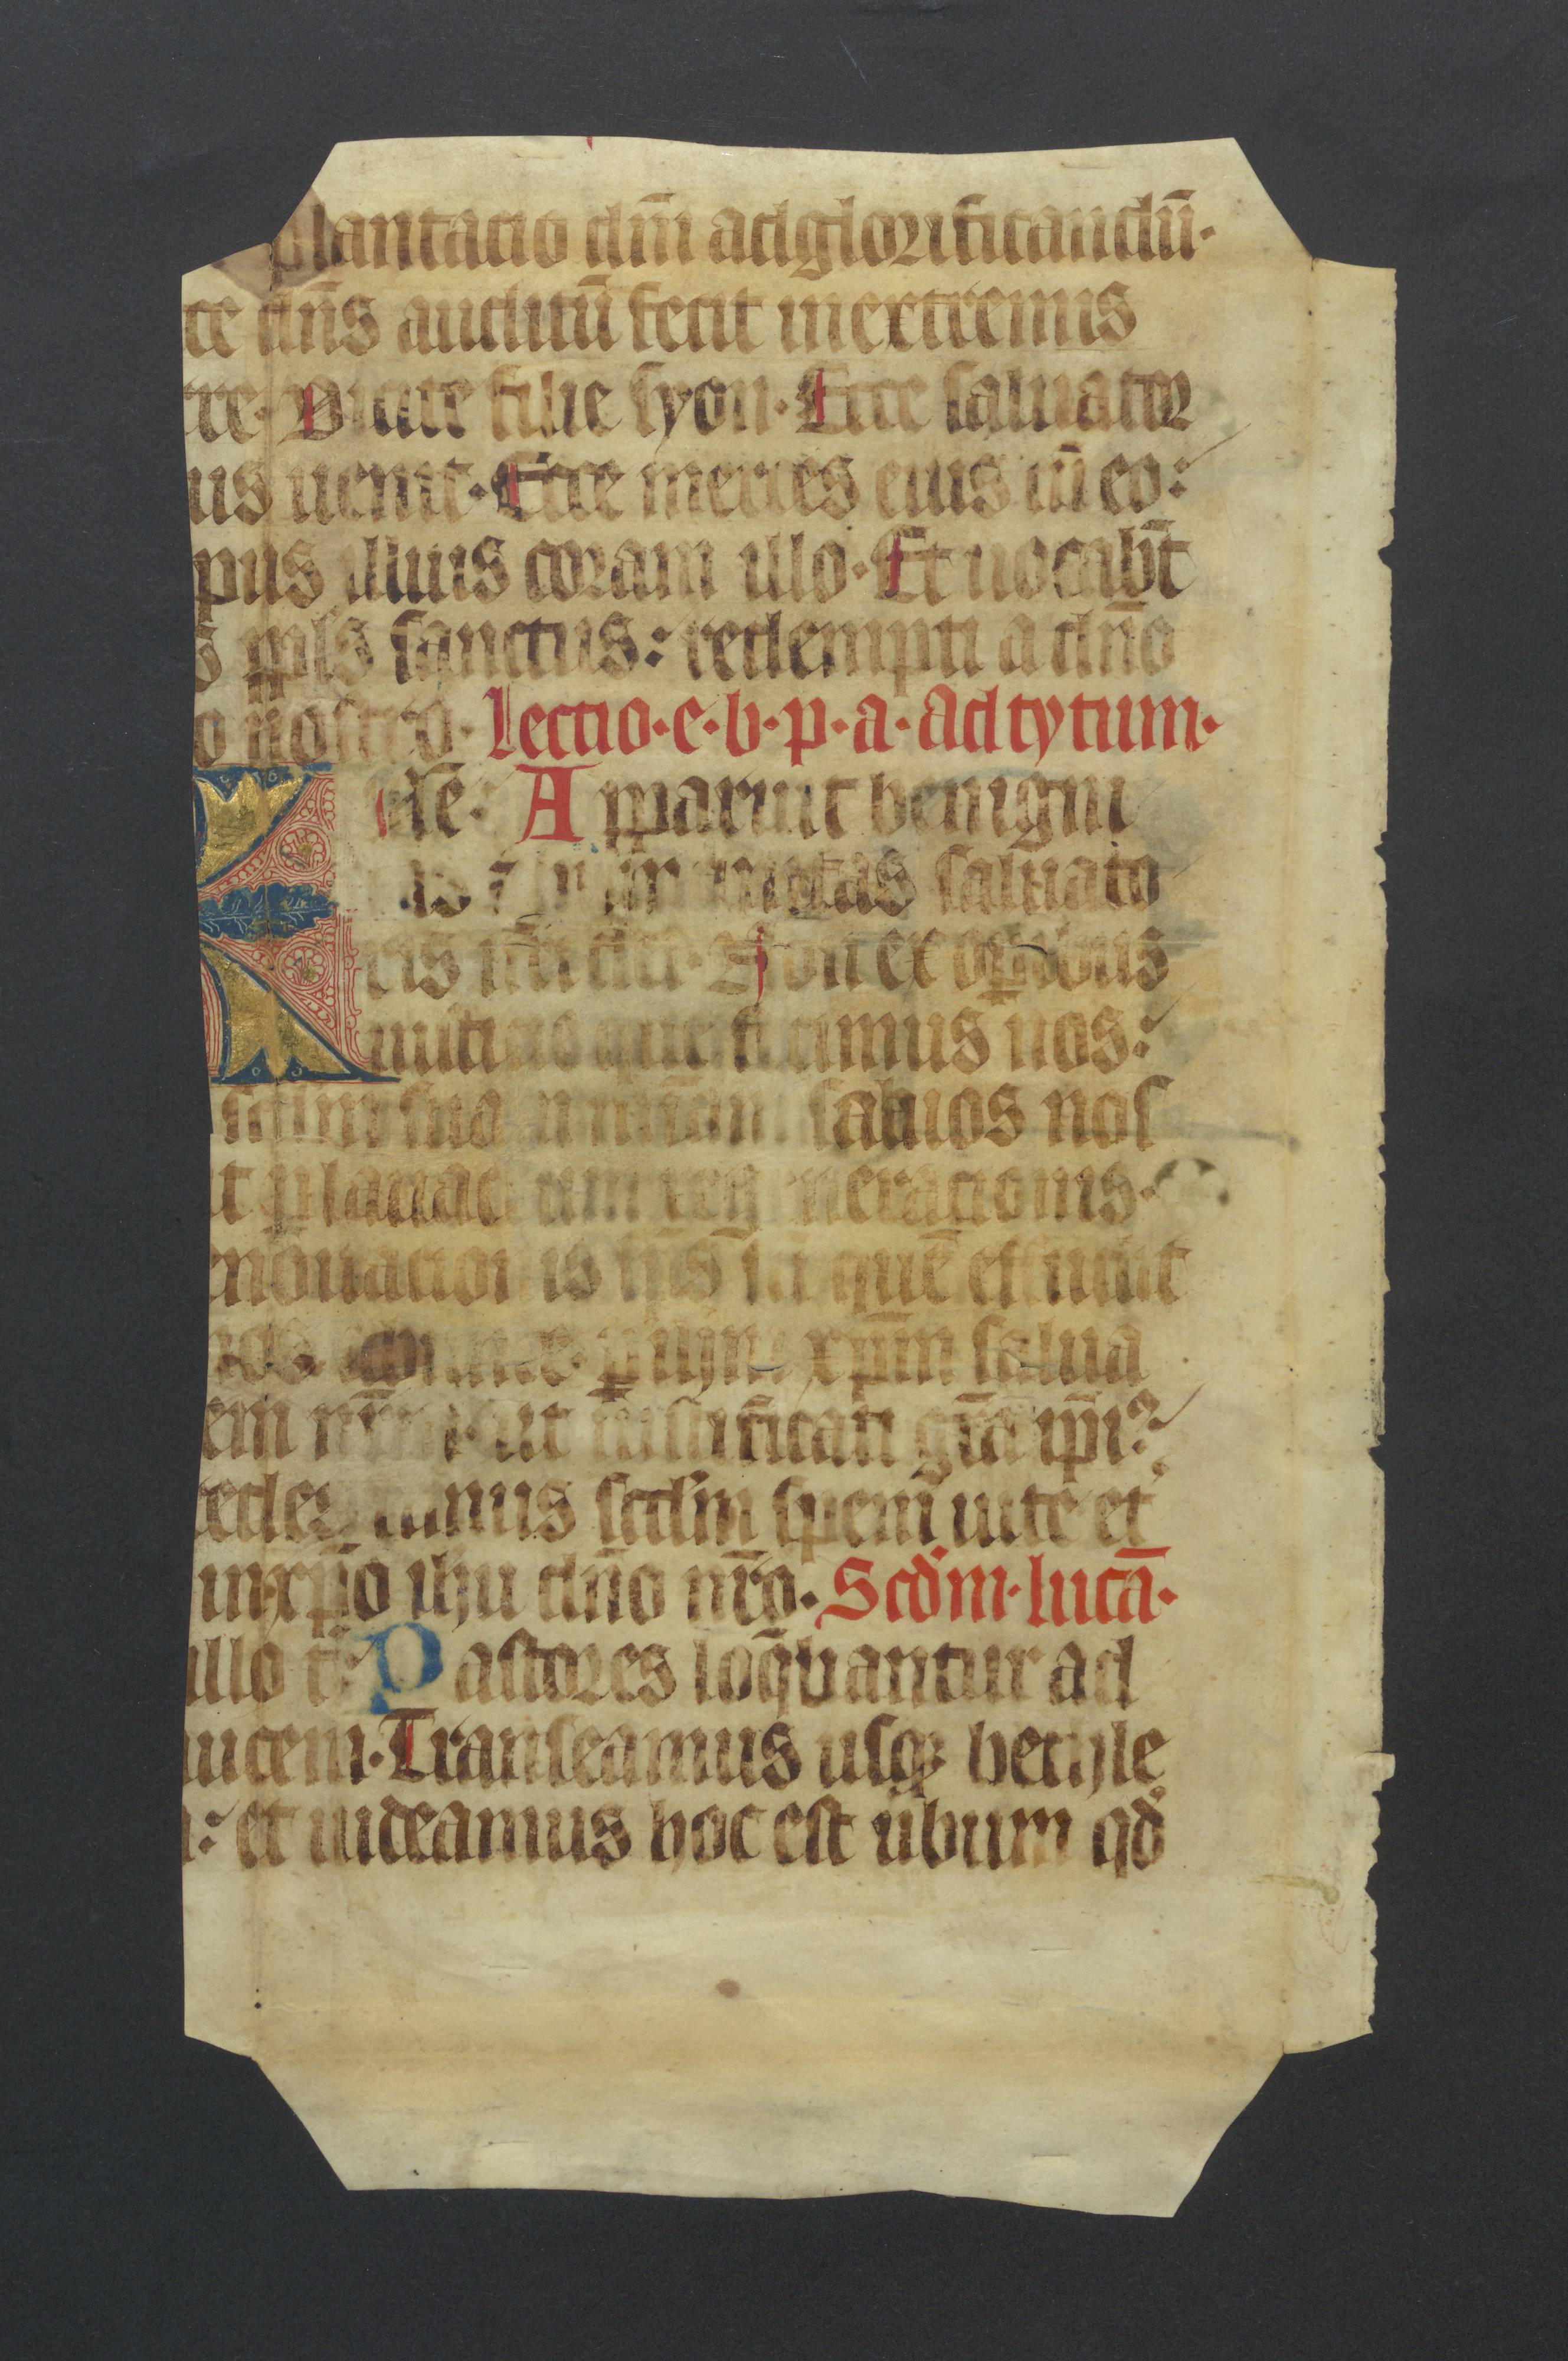 plantacio dn̄i ad glorificandū·
ce dn̄s auditū fecit in extremis
rre· Dicite filie syon· Ecce saluator
us uenit· Ecce merces eius cū eo:
pus illius coram illo· Et uocabūt
s ppl̄s sanctus: redempti a dn̄o
o nostro· Lectio·e·b·p·a· ad tytum·
Apparuit benigni
tas ⁊ humanitas saluato
ris nr̄i dei· Non ex oꝑibus
iusticie que fecimus nos:
sed̄m suā mīam saluos nos
t ꝑ lauac̄um regeneracionis·
enouacionis sp̄s sc̄i quē effudit
nos habunde· ꝑ ihm̄ xpm̄ salua
em nr̄m· ut iustificati gr̄a ip̄i⁹:
redes simus scd̄m spem uite et
in xp̄o ihu dn̄o nr̄o· Scd̄m·lucā·
illo t̄: Pastores loq̄bantur ad
uicem· Transeamus usqꝫ bethle
: et uideamus hoc est ūbum qd̄